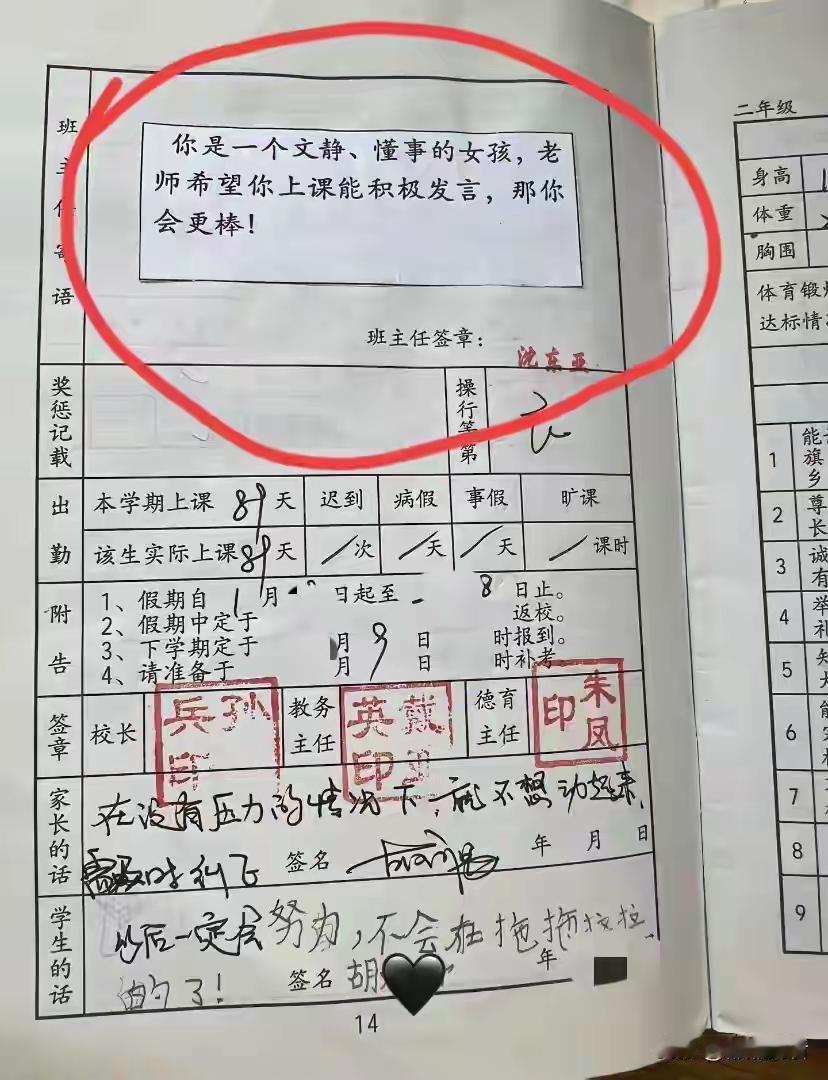 班主任寄语
你是一个文静、懂事的女孩，老
师希望你上课能积极发言，那你
会更棒！
班主任签章：
沈东亚
奖惩记载
操行等第
出勤
本学期上课 89 天 迟到 病假 事假 旷课
该生实际上课 89 天 /次 /天 /天 /课时
附告
1、假期自 1 月 日起至 8 日止。
2、假期中定于 返校。
3、下学期定于 月 9 日 时报到。
4、请准备于 月 日 时补考。
签章
校长
孙兵印
教务主任
戴英印
德育主任
朱凤印
家长的话
在没有压力的情况下，就不想动起来，
签名
年 月 日
学生的话
以后一定会努力，不会在拖拖拉拉
的了！
签名 胡
年
14
二年级
身高
体重
胸围
体育锻
达标情
1 能
旗
乡
2 尊
长
3 诚
有
4 举
补
5 知
6 能
7
8
9